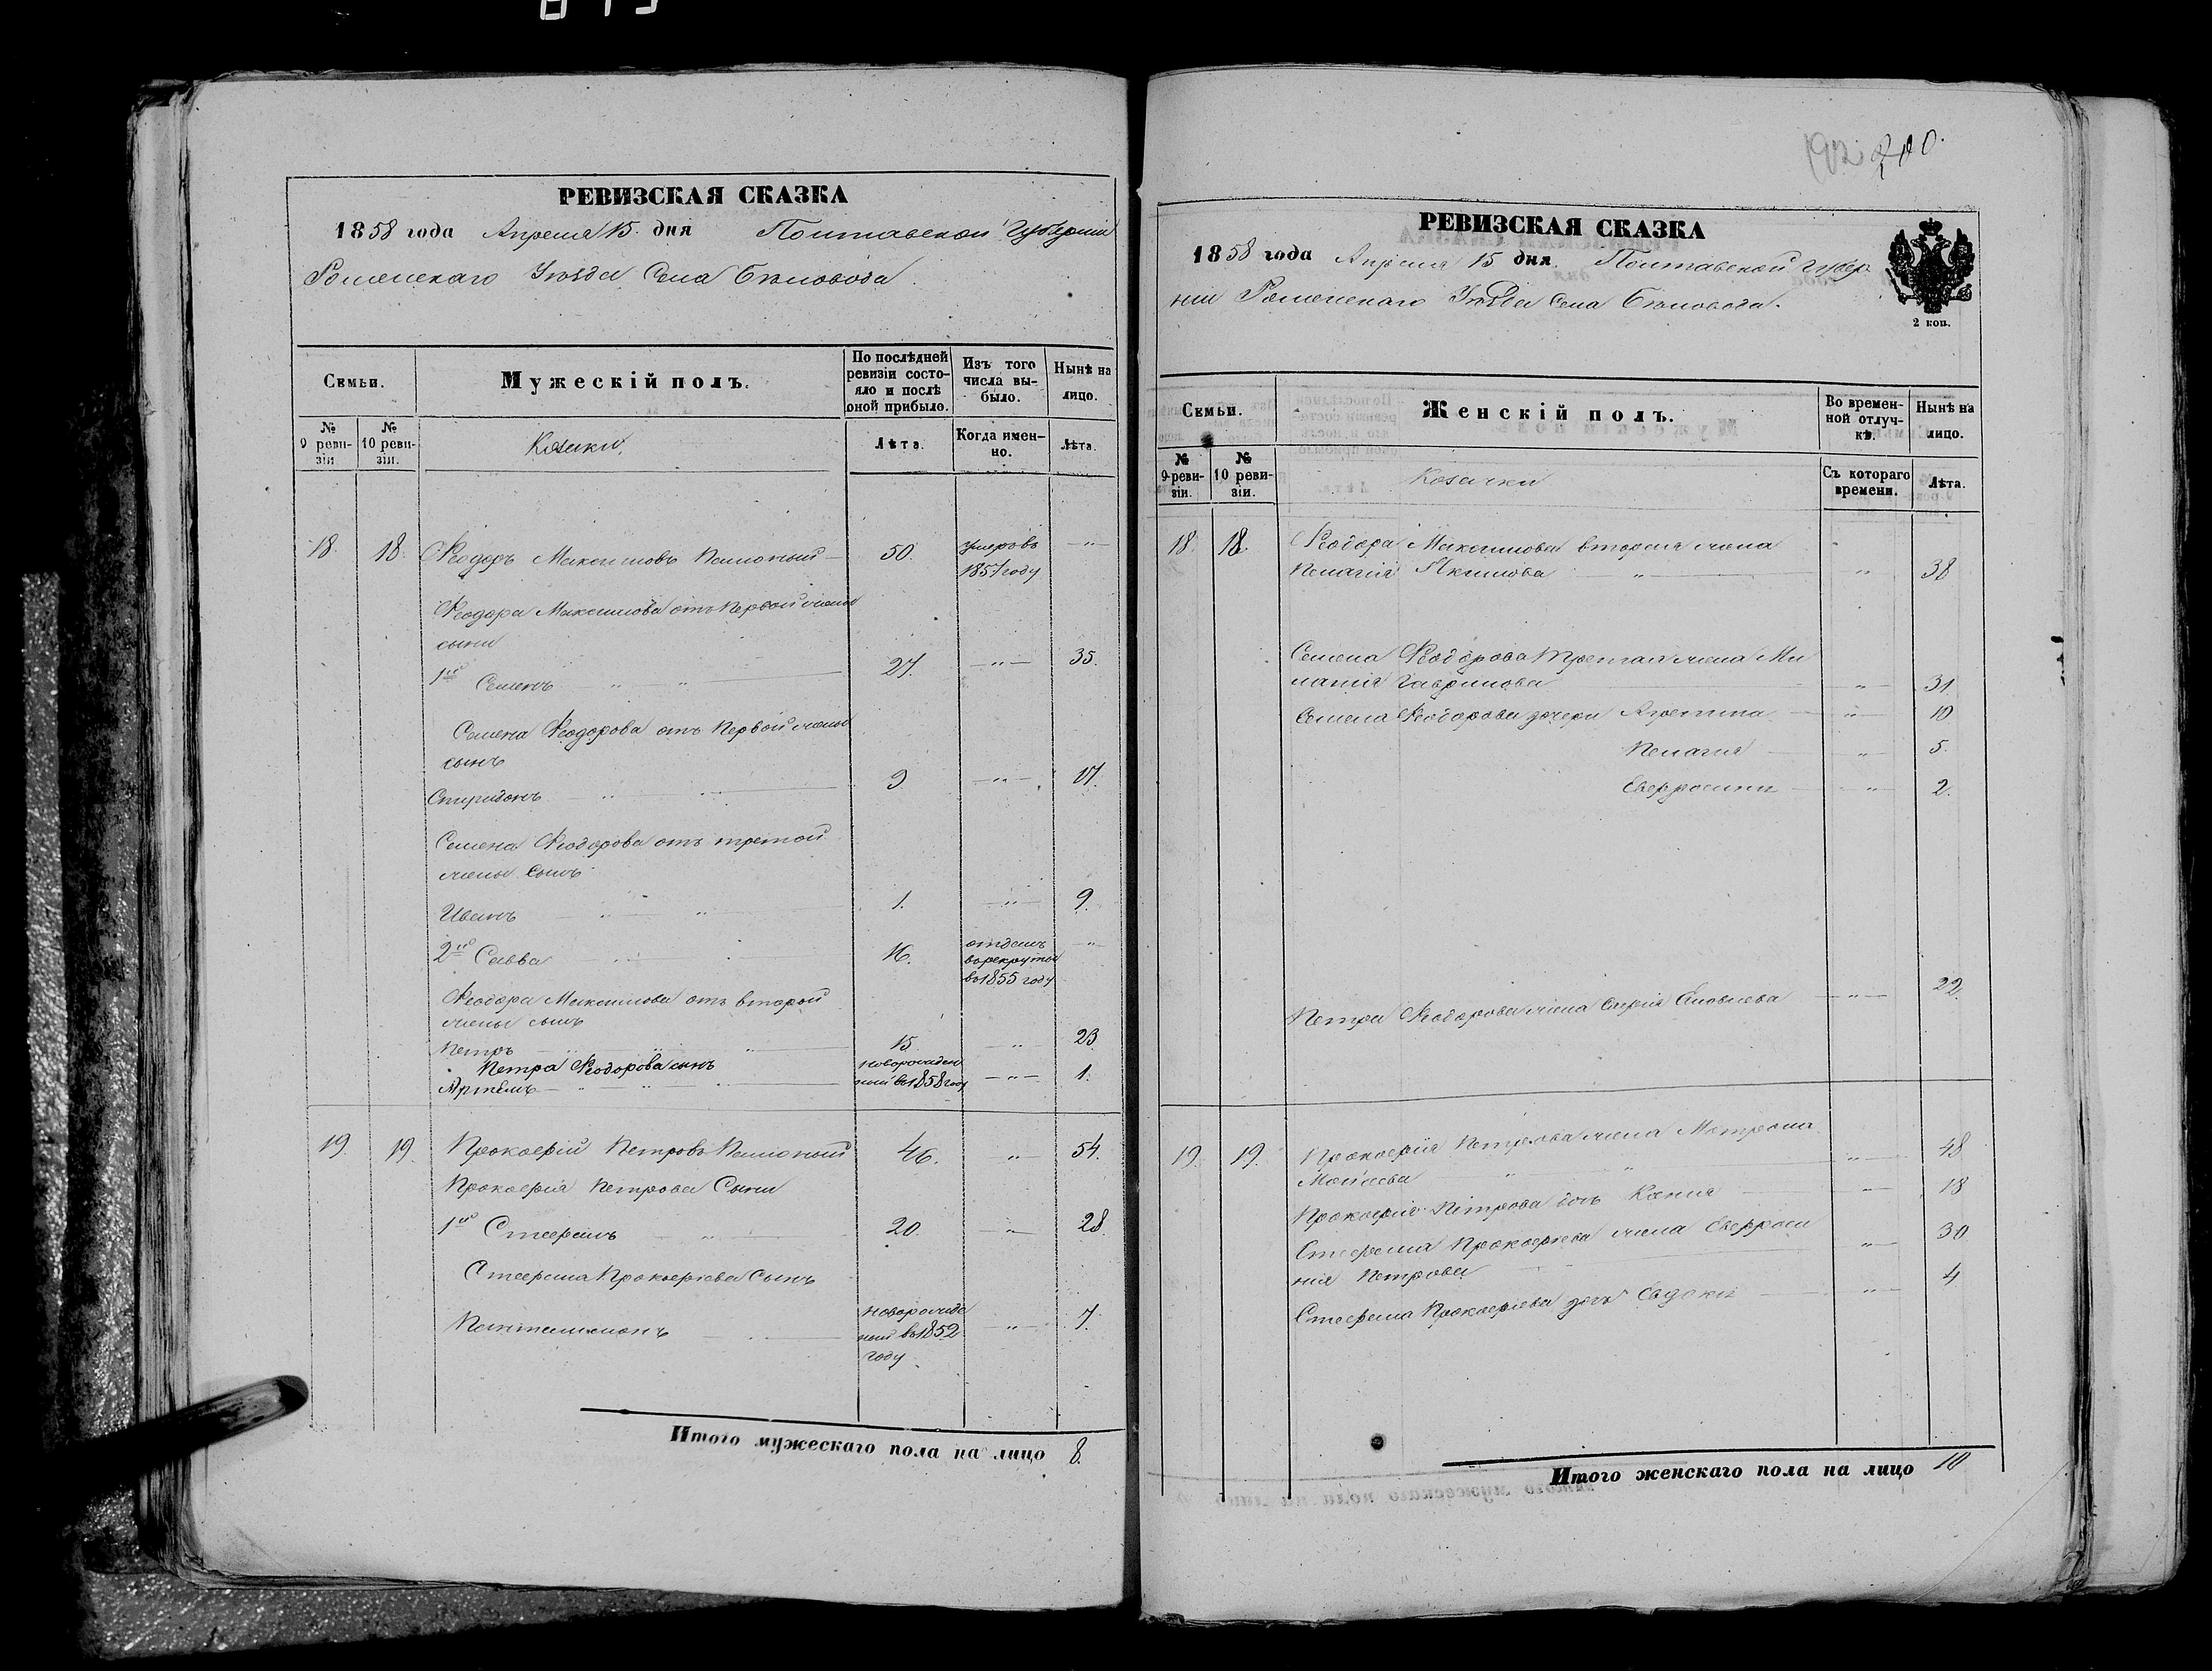 РЕВИЗСКАЯ СКАЗКА
1858 года Апреля 15. дня Полтавской Губернии
Роменскаго Уѣзда Села Бѣловода.
Семьи.
Мужескій полъ.
По послѣдней ревизіи состояло и послѣ оной прибыло.
Изъ того числа выбыло.
Нынѣ на лицо.
№ 9 ревизіи.
№ 10 ревизіи.
Козаки.
Лѣта.
Когда именно.
Лѣта.
18. 18. Ѳеодоръ Максимовъ 50. умеръ въ 1857 году — " —
Ѳеодора Максимова отъ первой жены
сыны
1й Семенъ — " — " — 27. — " — 35.
Семена Ѳеодорова отъ первой жены
сынъ
Спиридонъ — " — " — 9 — " — 17.
Семена Ѳеодорова отъ третой
жены сынъ
Иванъ — " — " — 1. — " — 9.
2й Савва — " — 16. отданъ в рекруты в 1855 году — " —
Ѳеодора Максимова отъ второй
жены сынъ
Петръ — " — " — 15 — " — 23
Петра Ѳеодорова сынъ
Артемъ — " — " — новорожденный в 1858 году — " — 1.
19. 19. Прокофій Петровъ 46. — " — 54.
Прокофія Петрова Сыны
1й Стефанъ — " — 20. — " — 28.
Стефана Прокофіева Сынъ
Пантелимонъ — новорожденный в 1852 году — " — 7.
Итого мужескаго пола на лицо 8.
200.
РЕВИЗСКАЯ СКАЗКА
1858 года Апреля 15 дня. Полтавской Губер
ніи Роменскаго Уѣзда Села Бѣловода.
2 коп.
Семьи.
Женскій полъ.
Во временной отлучкѣ.
Нынѣ на лицо.
№ 9 ревизіи.
№ 10 ревизіи.
Козачки
Съ котораго времени.
Лѣта.
18. 18. Ѳеодора Максимова вторая жена
Пелагія Якимова — " — " — 38
Семена Ѳеодорова третая жена Ме
ланія Гаврилова — " — 31
Семена Ѳеодорова дочери — " — 10
Пелагія — " — 5.
Евфросинія — " — 2.
Петра Ѳеодорова жена — " — 22.
19. 19. Прокофія Петрова жена Матрона
Мойсеева " " — " — 48
Прокофія Петрова дочь Ксенія — " — 18
Стефана Прокофіева жена Евфроси
нія Петрова — " — 30
Стефана Прокофіева дочь Евдокія — " — 4
Итого женскаго пола на лицо 10